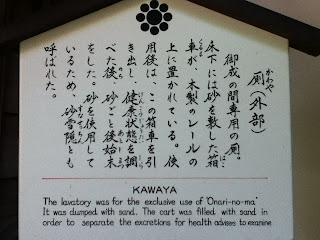 厠(外部)
かわや
御成の間専用の厠。
床下には砂を敷した箱
車が、木製のレールの
上に置かれている。使
用後は、この箱車を引
き出し、健康状態を調
べた後、砂ごと後始末
をした。砂を使用して
いるため、砂雪隠とも
呼ばれた。
KAWAYA
The lavatory was for the exclusive use of 'Onari-no-ma'
It was dumped with sand. The cart was filled with sand in
order to separate the excretions for health advises to examine